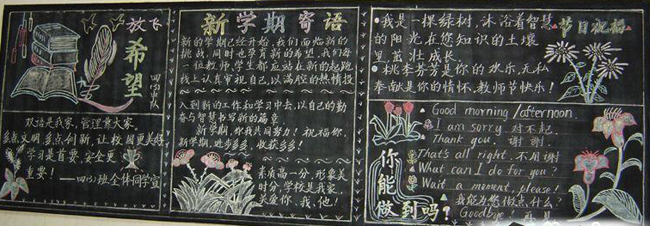 放飞
希望
四(3)中队
双语是我家,管理靠大家。
多点文明,多点创新,让校园更美好,
学习是首要,安全更
重要!——四(3)班全体同学宣
新学期寄语
新的学期已经开始,我们面临新的
挑战,同时也孕育新的希望,我们每
一位教师,学生都应站在新的起跑
线上认真审视自己,以满腔的热情投
入到新的工作和学习中去,以自己的勤
奋与智慧书写新的篇章
新学期,你我共同努力!祝福你,
新学期,进步多多,收获多多!
素质高一分,形象美
时分,学校是我家,
关爱你、我、他!
节日祝福
我是一棵绿树,沐浴着智慧
的阳光在您知识的土壤
里,茁壮成长
桃李芬芳是你的欢乐,无私
奉献是你的情怀,教师节快乐!
Good morning/afternoon.
I am sorry. 对不起.
Thank you. 谢谢.
That's all right. 不用谢
What can I do for you?
Wait a moment, please!
我能为您做点什么?
Goodbye! 再见
你能
做到吗?